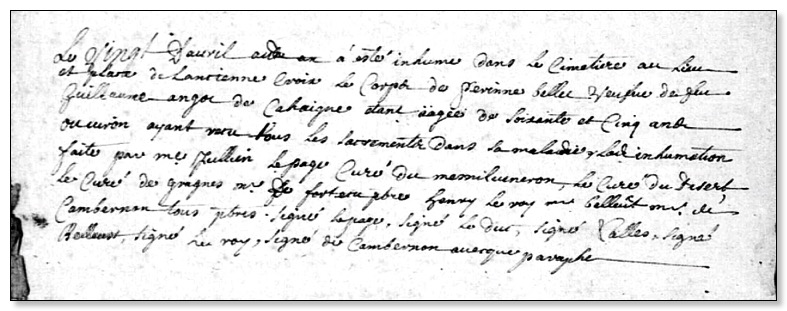 Le vingt d'auril audit an a esté inhumé dans le Cimetiere au lieu
et place de Lancienne Croix le Corps de Perinne bellet veufue de feu
Guillaume angot de Cahaigne etant aagée de soixante et Cinq ans
ou uiron ayant receu tous les sacrements dans sa maladie, lad inhumation
faite par me Jullien lepage Curé du mesnilueneron, le Curé du Desert
le Curé de graignes me fortecu pbre henry le roy me belleüst me de
Cambernon tous pbres. signé lepage, signé le duc, signé Valles, signé
Belleust, signé leroy, signé de Cambernon auecque paraphe